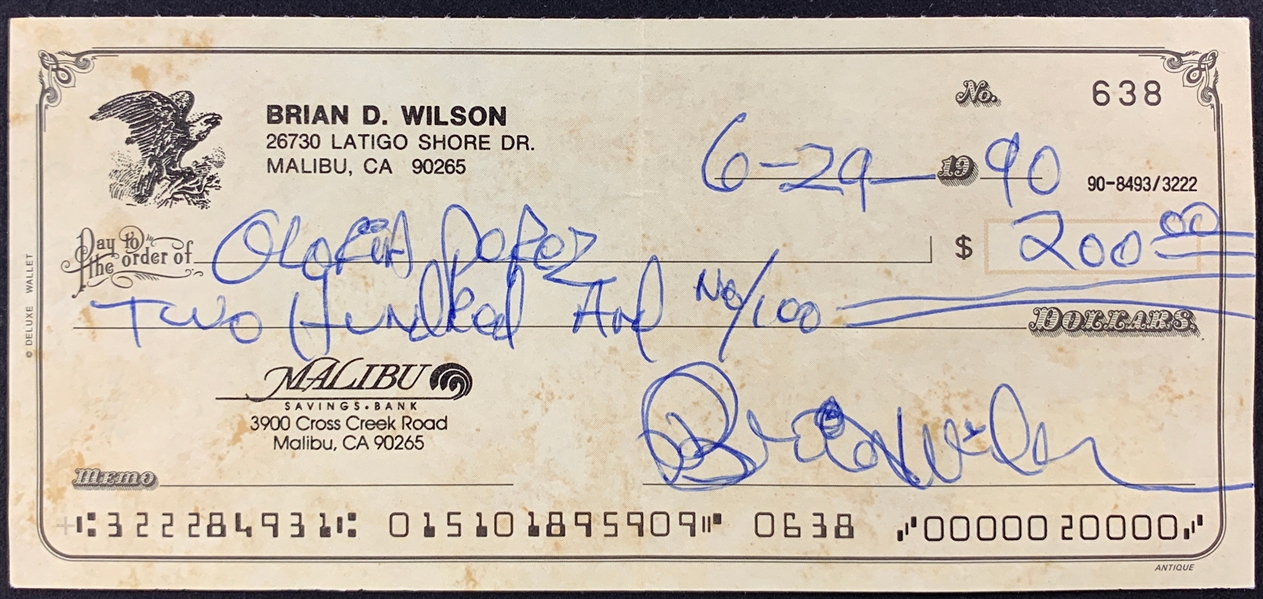 BRIAN D. WILSON
26730 LATIGO SHORE DR.
MALIBU, CA 90265
No. 638
6-29 19 90
90-8493/3222
Pay to the order of
$ 200.00
Two Hundred And No/100 DOLLARS
MALIBU
SAVINGS•BANK
3900 Cross Creek Road
Malibu, CA 90265
Brian Wilson
Memo
⑆322284931⑆ 015101895909⑈ 0638 ⑇0000020000⑇
© DELUXE WALLET
ANTIQUE